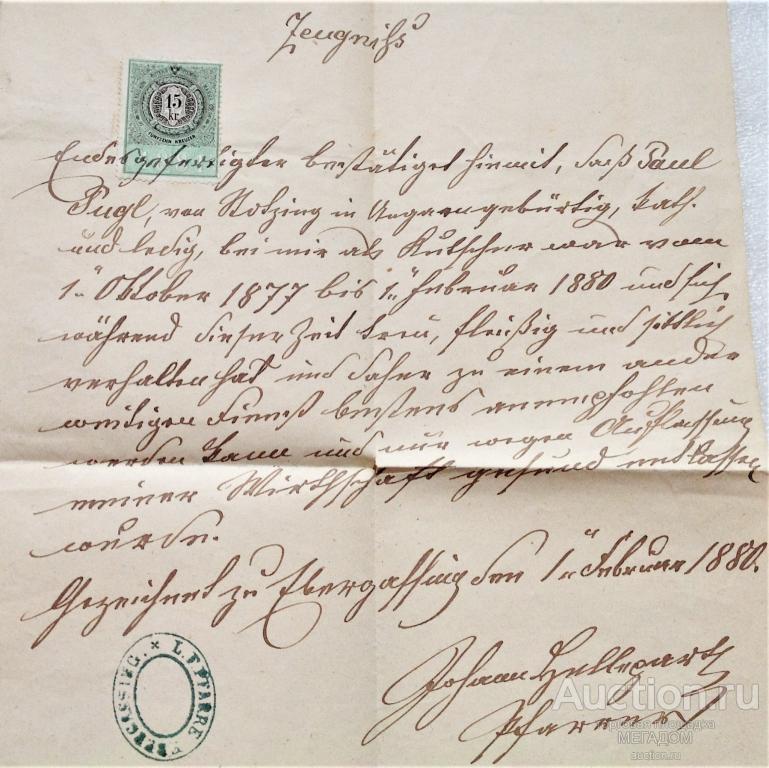 Zeugniß
15
kr.
FÜNFZEHN KREUZER
Endesgefertigter bestätiget hiemit, daß Paul
Pugl, von Stotzing in Ungarn gebürtig, kath.
und ledig, bei mir als Kutscher war vom
1. Oktober 1877 bis 1. Februar 1880 und sich
während dieser Zeit treu, fleißig und sittlich
verhalten hat und daher zu einem ander
weitigen Dienst bestens anempfohlen
werden kann und nur wegen Auflassung
meiner Wirthschaft gesund entlassen
wurde.
Gezeichnet zu Ebergassing den 1. Februar 1880.
Johann
Pfarrer
L.F. PFARRE EBERGASSING.
Auction.ru
торговая площадка
МЕГАДОМ
auction.ru